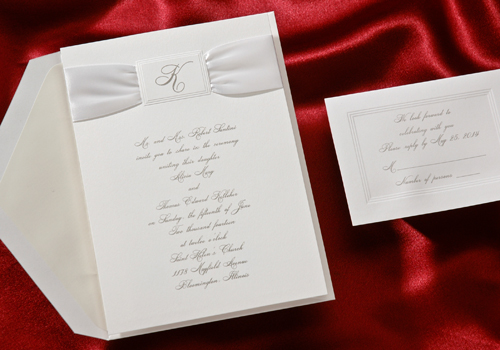 K
Mr. and Mrs. Robert Santini
invite you to share in the ceremony
uniting their daughter
Alison Mary
and
Thomas Edward Kelleher
on Sunday, the fifteenth of June
Two thousand fourteen
at twelve o'clock
Saint Helen's Church
1178 Mayfield Avenue
Bloomington, Illinois
We look forward to
celebrating with you
Please reply by May 25, 2014
M
Number of persons